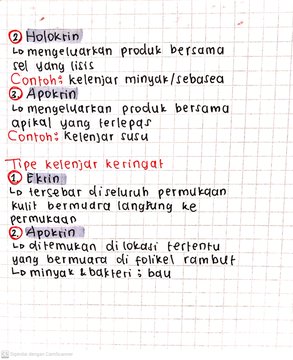 2. Holokrin
↳ mengeluarkan produk bersama
sel yang lisis
Contoh: kelenjar minyak/sebasea
3. Apokrin
↳ mengeluarkan produk bersama
apikal yang terlepas
Contoh: Kelenjar susu
Tipe kelenjar keringat
1. Ekrin
↳ tersebar diseluruh permukaan
kulit bermuara langsung ke
permukaan
2. Apokrin
↳ ditemukan di lokasi tertentu
yang bermuara di folikel rambut
↳ minyak & bakteri : bau
CS Dipindai dengan CamScanner